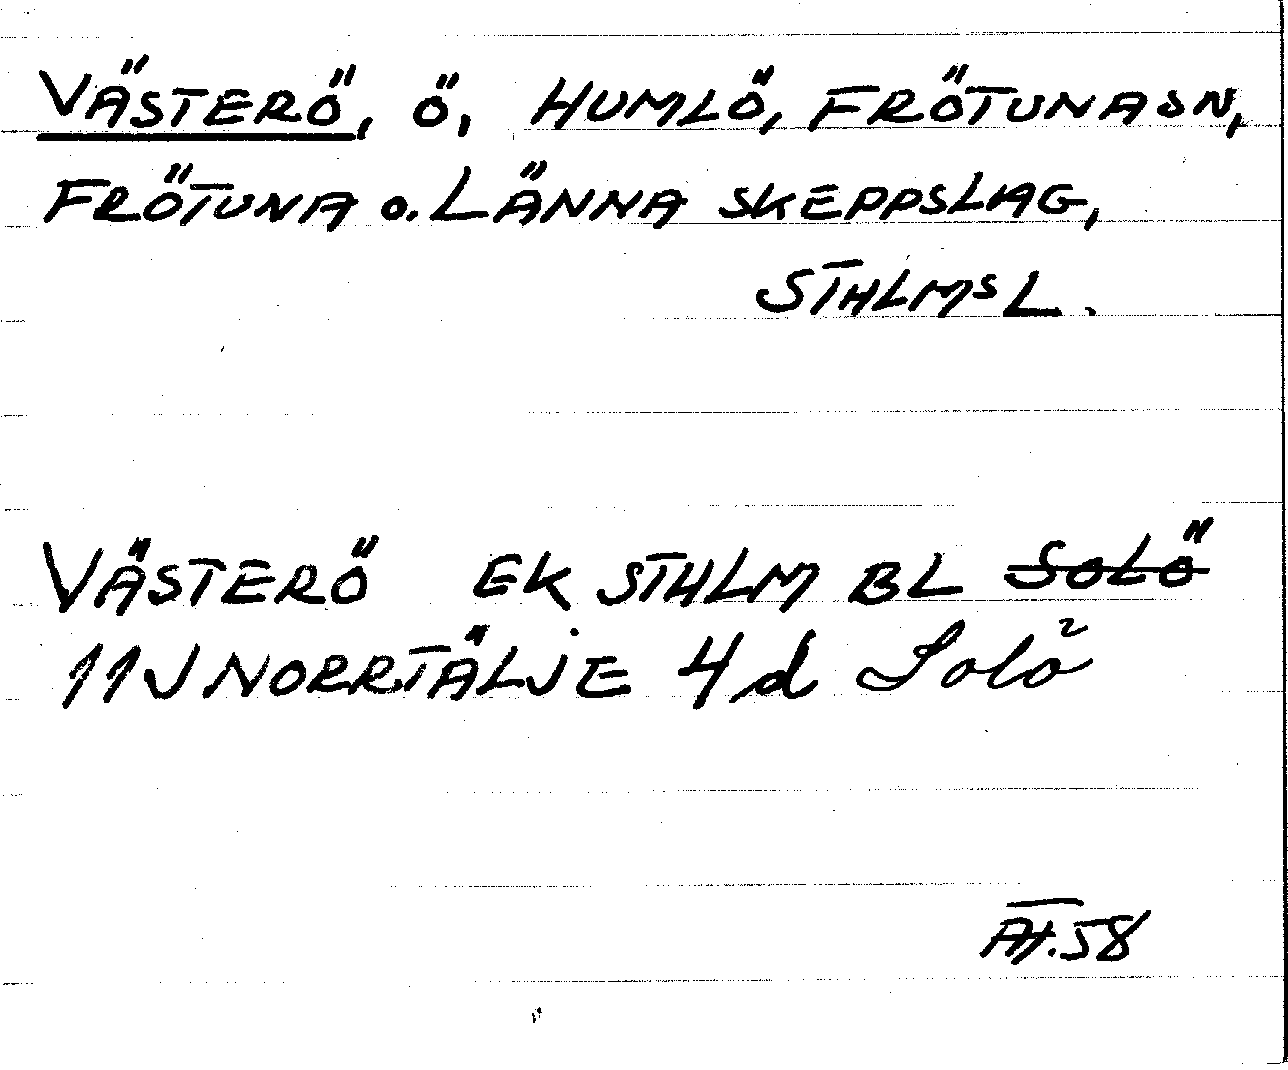 VÄSTERÖ, Ö, HUMLÖ, FRÖTUNA SN,
FRÖTUNA o. LÄNNA SKEPPSLAG,
STHLMS L.
VÄSTERÖ EK STHLM BL SOLÖ
11J NORRTÄLJE 4d Solö
AT.58